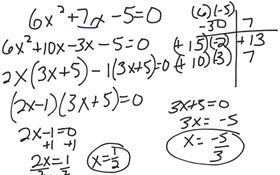 6x² + 7x - 5 = 0
6x² + 10x - 3x - 5 = 0
2x(3x+5) - 1(3x+5) = 0
(2x-1)(3x+5) = 0
2x - 1 = 0
+1 +1
2x = 1
2 2
x = 1/2
(6)(-5)
-30 | 7
(+15)(-2) | +13
(+10)(-3) | 7
3x+5 = 0
3x = -5
x = -5/3